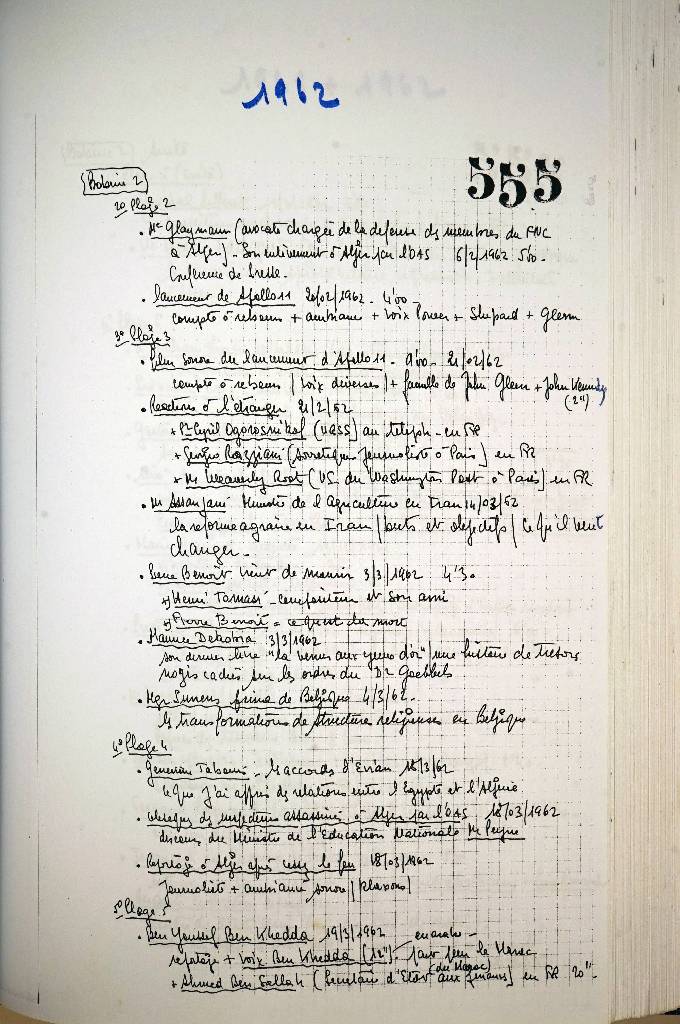 1962
555
Bobine 2
2º Plage 2
• Me Glaymann (avocate chargée de la defense des membres du FNC
à Alger) - Son enlèvement à Alger par l'OAS 6/2/1962 5'00 -
Conférence de Presse -
• lancement de Apollo 11 20/02/1962 - 4'00 -
compte à rebours + ambiance + voix Power + Shepard + Glenn
3º Plage 3
• Film sonore du lancement d'Apollo 11 - 9'00 - 21/02/62
compte à rebours (voix diverses) + famille de John Glenn + John Kennedy
(2")
• Reactions à l'étranger 21/2/62
+ Pr Cyril Ogorosnikof (URSS) au teleph - en FR
+ Georges Razziani (Journaliste à Paris) en FR
+ Mr Weaverley Root (US. du Washington Post à Paris) en FR
• M Assanjani Ministre de l'Agriculture en Iran 14/03/62
la reforme agraire en Iran / buts et objectifs / Ce qu'il veut
changer -
• Benoit vient de mourir 3/3/1962 4'30
+) Henri Tomasi - compositeur et son ami
+) Pierre Benoit = ce qu'est la mort
• Maurice Dekobra 3/3/1962
son dernier livre "la venus aux yeux d'or" une histoire de tresors
nazis cachés sur les ordres du Dr Goebbels
• Mgr Suenens de Belgique 4/3/62 -
les transformations de structure religieuses en Belgique
4º Plage 4
• Genevieve Tabouis - les accords d'Evian 18/3/62
Ce que j'ai appris des relations entre l'Egypte et l'Algérie
• obseques des inspecteurs assassinés à Alger par l'OAS 18/03/1962
discours du Ministre de l'Education Nationale Mr
• Reportage à Alger après cessez le feu 18/03/1962
Journaliste + ambiance sonore (klaxons)
5º Plage 5
• Ben Youssef Ben Khedda 19/3/1962 en arabe -
reportage + voix Ben Khedda (12") - pour le Maroc
(du Maroc)
+ Ahmed Ben Sallah (Secretaire d'Etat aux finances) en FR 20" -